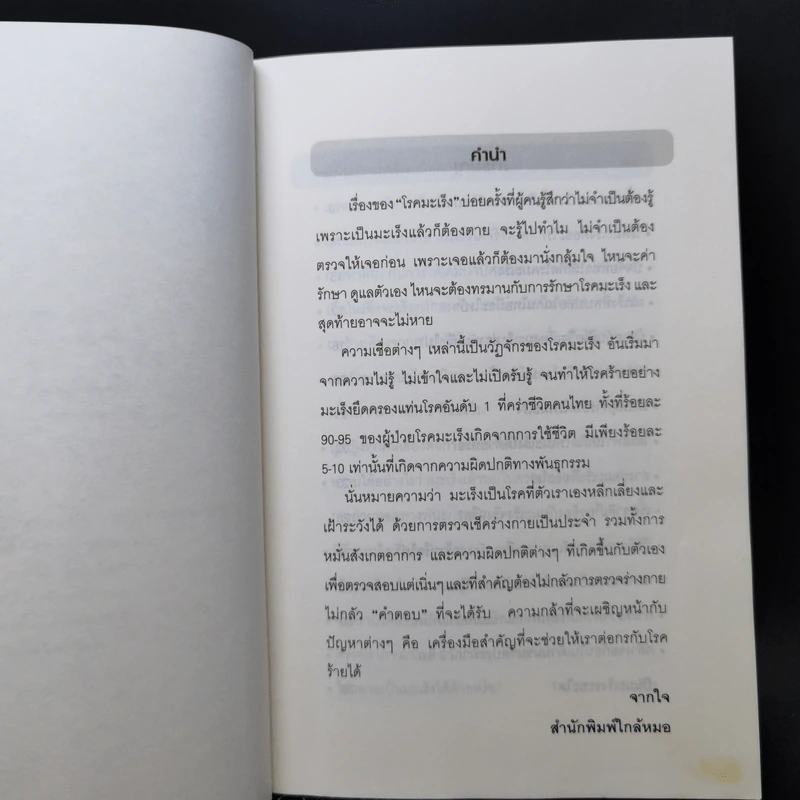 คำนำ
เรื่องของ “โรคมะเร็ง” บ่อยครั้งที่ผู้คนรู้สึกว่าไม่จำเป็นต้องรู้
เพราะเป็นมะเร็งแล้วก็ต้องตาย จะรู้ไปทำไม ไม่จำเป็นต้อง
ตรวจให้เจอก่อน เพราะเจอแล้วก็ต้องมานั่งกลุ้มใจ ไหนจะค่า
รักษา ดูแลตัวเอง ไหนจะต้องทรมานกับการรักษาโรคมะเร็ง และ
สุดท้ายอาจจะไม่หาย
ความเชื่อต่างๆ เหล่านี้เป็นวัฏจักรของโรคมะเร็ง อันเริ่มมา
จากความไม่รู้ ไม่เข้าใจและไม่เปิดรับรู้ จนทำให้โรคร้ายอย่าง
มะเร็งยึดครองแท่นโรคอันดับ 1 ที่คร่าชีวิตคนไทย ทั้งที่ร้อยละ
90-95 ของผู้ป่วยโรคมะเร็งเกิดจากการใช้ชีวิต มีเพียงร้อยละ
5-10 เท่านั้นที่เกิดจากความผิดปกติทางพันธุกรรม
นั่นหมายความว่า มะเร็งเป็นโรคที่ตัวเราเองหลีกเลี่ยงและ
เฝ้าระวังได้ ด้วยการตรวจเช็คร่างกายเป็นประจำ รวมทั้งการ
หมั่นสังเกตอาการ และความผิดปกติต่างๆ ที่เกิดขึ้นกับตัวเอง
เพื่อตรวจสอบแต่เนิ่นๆ และที่สำคัญต้องไม่กลัวการตรวจร่างกาย
ไม่กลัว “คำตอบ” ที่จะได้รับ ความกล้าที่จะเผชิญหน้ากับ
ปัญหาต่างๆ คือ เครื่องมือสำคัญที่จะช่วยให้เราต่อกรกับโรค
ร้ายได้
จากใจ
สำนักพิมพ์ใกล้หมอ